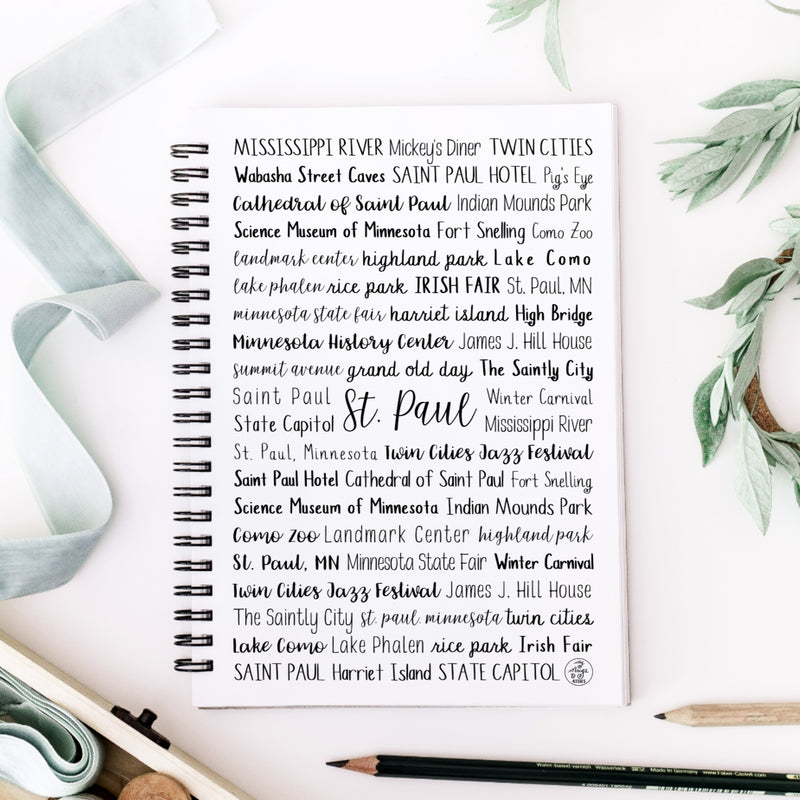 MISSISSIPPI RIVER Mickey's Diner TWIN CITIES
Wabasha Street Caves SAINT PAUL HOTEL Pig's Eye
Cathedral of Saint Paul Indian Mounds Park
Science Museum of Minnesota Fort Snelling Como Zoo
landmark center highland park Lake Como
lake phalen rice park IRISH FAIR St. Paul, MN
minnesota state fair harriet island High Bridge
Minnesota History Center James J. Hill House
summit avenue grand old day The Saintly City
Saint Paul
State Capitol
St. Paul
Winter Carnival
Mississippi River
St. Paul, Minnesota Twin Cities Jazz Festival
Saint Paul Hotel Cathedral of Saint Paul Fort Snelling
Science Museum of Minnesota Indian Mounds Park
Como Zoo Landmark Center highland park
St. Paul, MN Minnesota State Fair Winter Carnival
Twin Cities Jazz Festival James J. Hill House
The Saintly City st. paul. minnesota twin cities
Lake Como Lake Phalen rice park Irish Fair
SAINT PAUL Harriet Island STATE CAPITOL
Made in Germany www.Faber-Castell